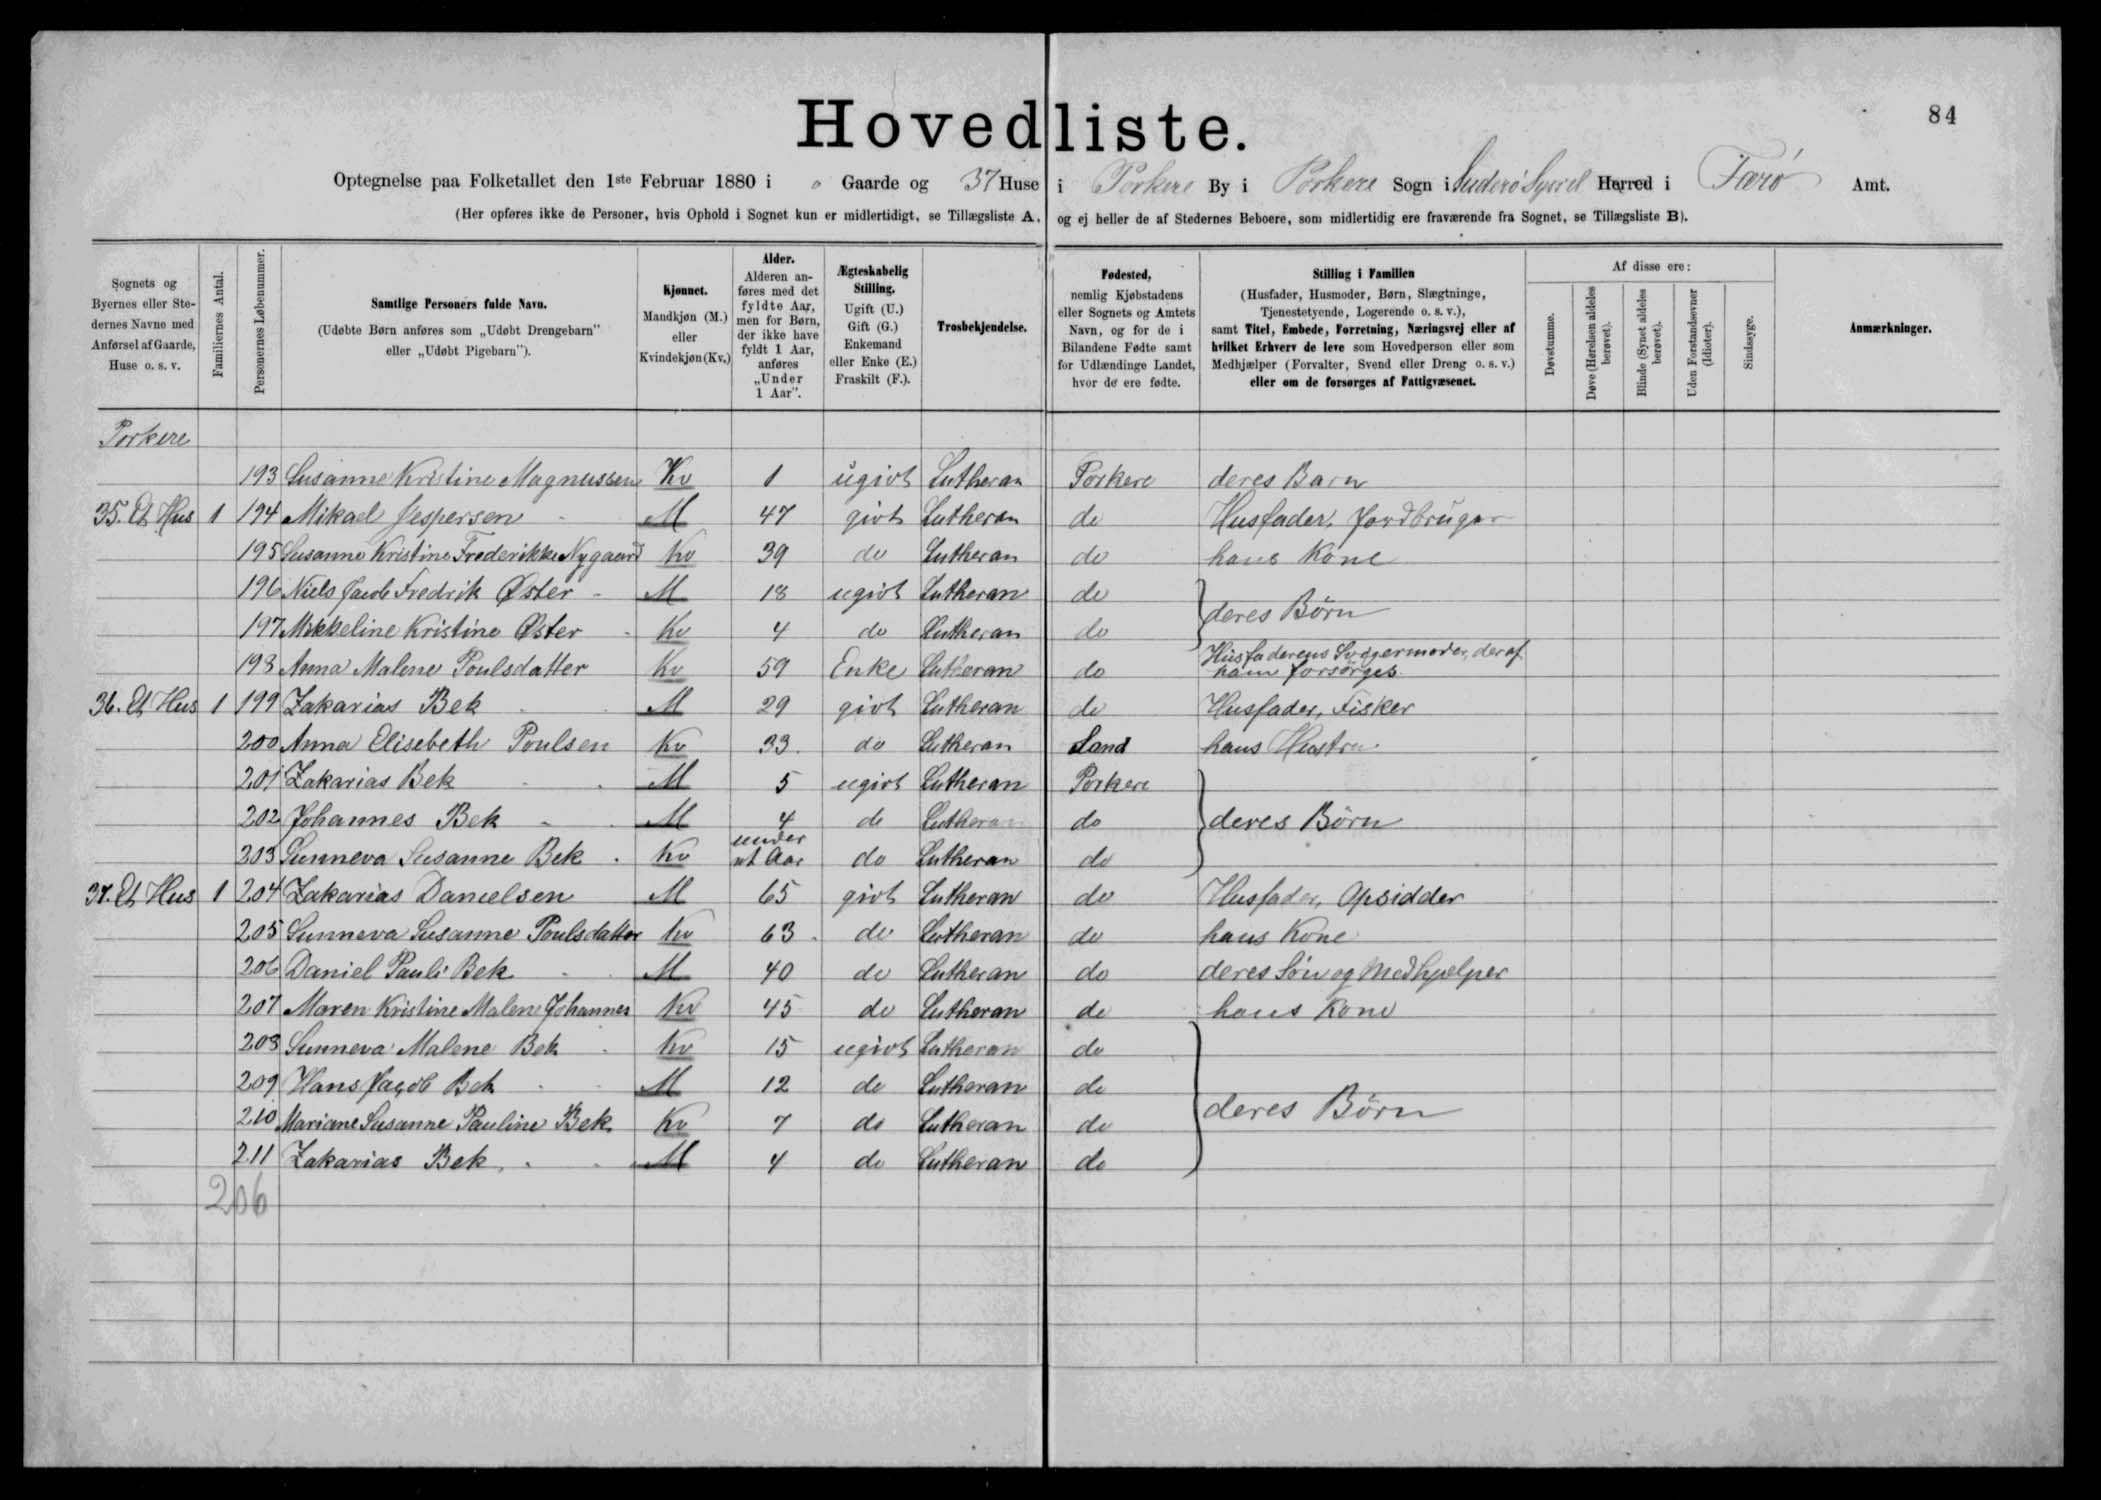 84
Hovedliste.
Optegnelse paa Folketallet den 1ste Februar 1880 i 0 Gaarde og 37 Huse i Porkere By i Porkere Sogn i Suderö Syssel Herred i Færö Amt.
(Her opføres ikke de Personer, hvis Ophold i Sognet kun er midlertidigt, se Tillægsliste A, og ej heller de af Stedernes Beboere, som midlertidig ere fraværende fra Sognet, se Tillægsliste B).
Sognets og Byernes eller Stedernes Navne med Anførsel af Gaarde, Huse o. s. v.
Familiernes Antal.
Personernes Løbenummer.
Samtlige Personers fulde Navn.
(Udøbte Børn anføres som „Udøbt Drengebarn" eller „Udøbt Pigebarn").
Kjønnet.
Mandkjøn (M.) eller Kvindekjøn (Kv.)
Alder.
Alderen anføres med det fyldte Aar, men for Børn, der ikke have fyldt 1 Aar, anføres „Under 1 Aar".
Ægteskabelig Stilling.
Ugift (U.) Gift (G.) Enkemand eller Enke (E.) Fraskilt (F.).
Trosbekjendelse.
Fødested,
nemlig Kjøbstadens eller Sognets og Amtets Navn, og for de i Bilandene Fødte samt for Udlændinge Landet, hvor de ere fødte.
Stilling i Familien
(Husfader, Husmoder, Børn, Slægtninge, Tjenestetyende, Logerende o. s. v.), samt Titel, Embede, Forretning, Næringsvej eller af hvilket Erhverv de leve som Hovedperson eller som Medhjælper (Forvalter, Svend eller Dreng o. s. v.) eller om de forsørges af Fattigvæsenet.
Af disse ere:
Døvstumme.
Døve (Hørelsen aldeles berøvet).
Blinde (Synet aldeles berøvet).
Uden Forstandsevner (Idioter).
Sindssyge.
Anmærkninger.
Porkere
193 Susanne Kristine Magnussen Kv 1 ugivt Lutheran Porkere deres Barn
35. Et Hus 1 194 Mikael Jespersen M 47 givt Lutheran do Husfader, Jordbruger
195 Susanne Kristine Frederikke Nygaard Kv 39 do Lutheran do hans Kone
196 Niels Jacob Fredrik Øster M 18 ugivt Lutheran do
deres Børn
197 Mikkeline Kristine Øster Kv 4 do Lutheran do
198 Anna Malene Poulsdatter Kv 59 Enke Lutheran do Husfaderens Svigermoder, der af ham forsørges.
36. Et Hus 1 199 Zakarias Bek M 29 givt Lutheran do Husfader, Fisker
200 Anna Elisebeth Poulsen Kv 33. do Lutheran Sand hans Hustru
201 Zakarias Bek M 5 ugivt Lutheran Porkere
202 Johannes Bek M 4 do Lutheran do deres Børn
203 Sunneva Susanne Bek Kv under et Aar do Lutheran do
37. Et Hus 1 204 Zakarias Danielsen M 65 givt Lutheran do Husfader, Opsidder
205 Sunneva Susanne Poulsdatter Kv 63 do Lutheran do hans Kone
206 Daniel Pauli Bek M 40 do Lutheran do deres Søn og Medhjelper
207 Maren Kristine Malene Johannes Kv 45 do Lutheran do hans Kone
208 Sunneva Malene Bek Kv 15 ugivt Lutheran do
209 Hans Jacob Bek M 12 do Lutheran do
deres Børn
210 Mariane Susanne Pauline Bek Kv 7 do Lutheran do
211 Zakarias Bek M 4 do Lutheran do
206